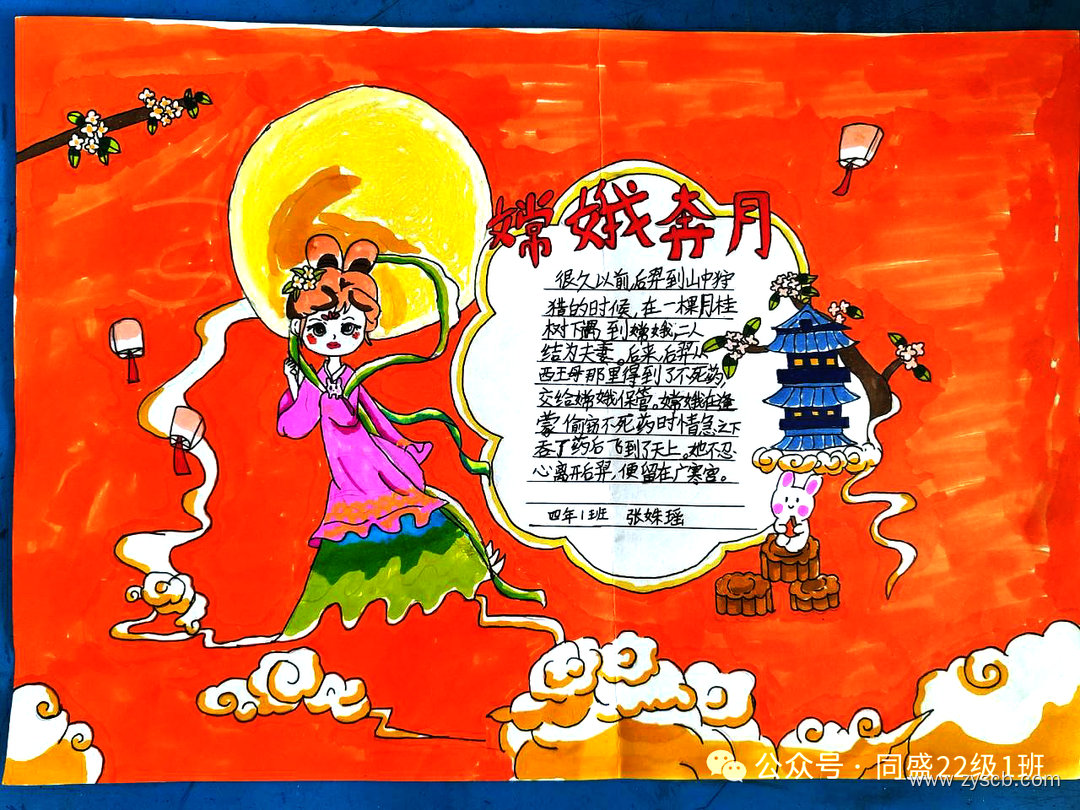 嫦娥奔月
很久以前,后羿到山中狩
猎的时候,在一棵月桂
树下遇到嫦娥,二人
结为夫妻。后来后羿从
西王母那里得到了不死药,
交给嫦娥保管。嫦娥在逢
蒙偷窃不死药时情急之下
吞了药后飞到了天上。她不忍
心离开后羿,便留在广寒宫。
四年1班 张姝瑶
公众号·同盛22级1班
www.zyscb.com